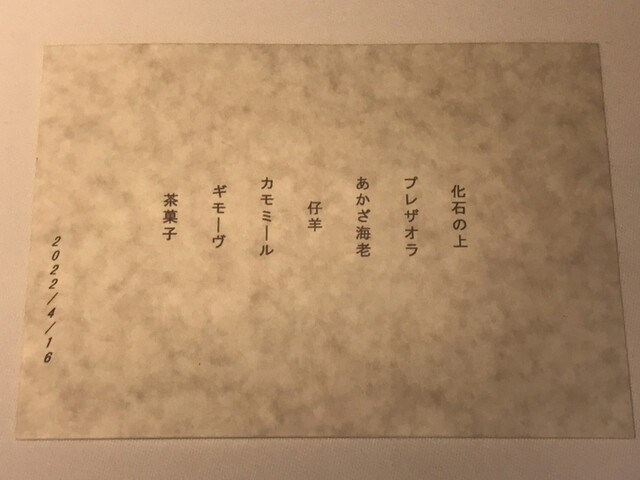 化石の上
ブレザオラ
あかざ海老
仔羊
カモミール
ギモーヴ
茶菓子
2022/4/16